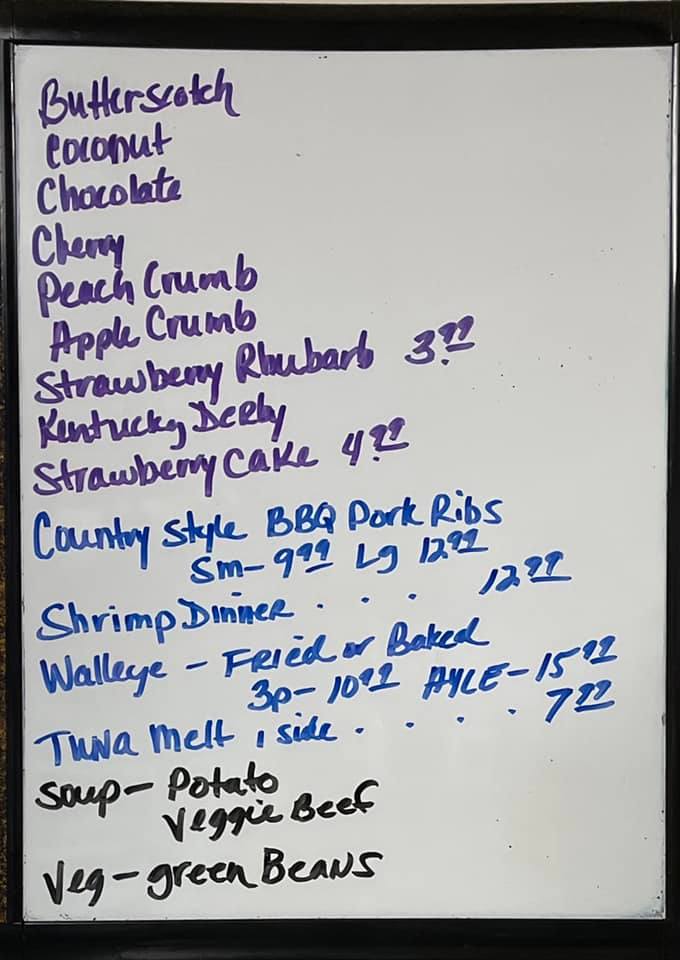 Butterscotch
Coconut
Chocolate
Cherry
Peach Crumb
Apple Crumb
Strawberry Rhubarb 3.99
Kentucky Derby
Strawberry Cake 4.99
Country Style BBQ Pork Ribs
Sm- 9.99 Lg 12.99
Shrimp Dinner . . . 12.99
Walleye - Fried or Baked
3p- 10.99 AYCE- 15.99
Tuna Melt 1 side . . . . 7.99
Soup- Potato
Veggie Beef
Veg- green Beans